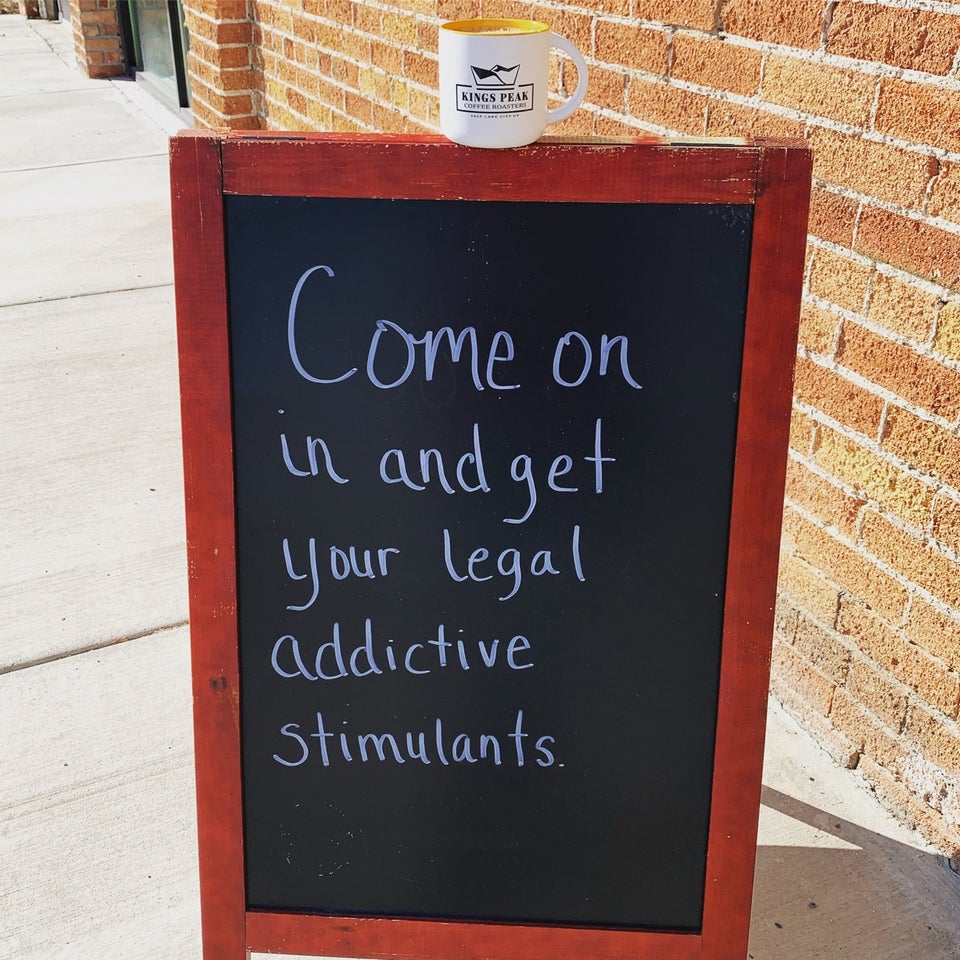 KINGS PEAK
COFFEE ROASTERS
SALT LAKE CITY UT
Come on
in and get
your legal
addictive
stimulants.